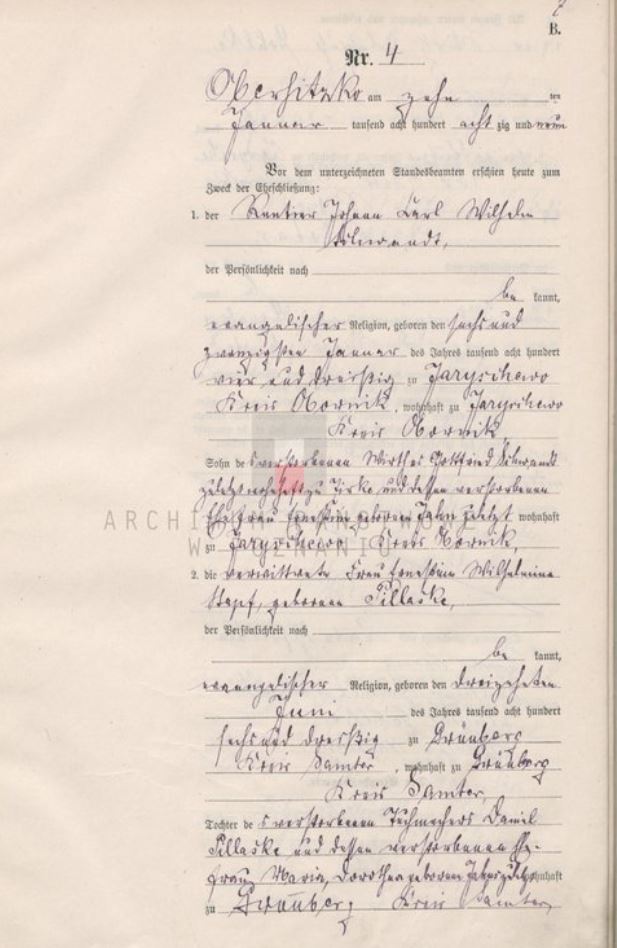 B.
Nr. 4
Obersitzko am zehn ten
Januar tausend acht hundert acht zig und neun
Vor dem unterzeichneten Standesbeamten erschien heute zum
Zweck der Eheschließung:
1. der Rentier Johann Carl Wilhelm
der Persönlichkeit nach
be kannt,
evangelischer Religion, geboren den sechs und
zwanzigsten Januar des Jahres tausend acht hundert
vier und dreißig zu Jaryschewo
Kreis Obornik, wohnhaft zu Jaryschewo
Kreis Obornik
Sohn des verstorbenen Wirthes Gottfried
zuletzt wohnhaft zu und dessen verstorbenen
Ehefrau Ernestine geborenen Jahn zuletzt wohnhaft
zu Jaryschewo Kreis Obornik,
2. die verwittwete Frau Ernestine Wilhelmine
Stapf, geborene Pillaske,
der Persönlichkeit nach
be kannt,
evangelischer Religion, geboren den dreizehnten
Juni des Jahres tausend acht hundert
sechs und dreißig zu Grünberg
Kreis Samter, wohnhaft zu Grünberg
Kreis Samter,
Tochter des verstorbenen Tuchmachers Daniel
Pillaske und dessen verstorbenen Ehe-
frau Maria, Dorothea geborenen zuletzt wohnhaft
zu Grünberg Kreis Samter,
ARCHIWUM PAŃSTWOWE
W POZNANIU